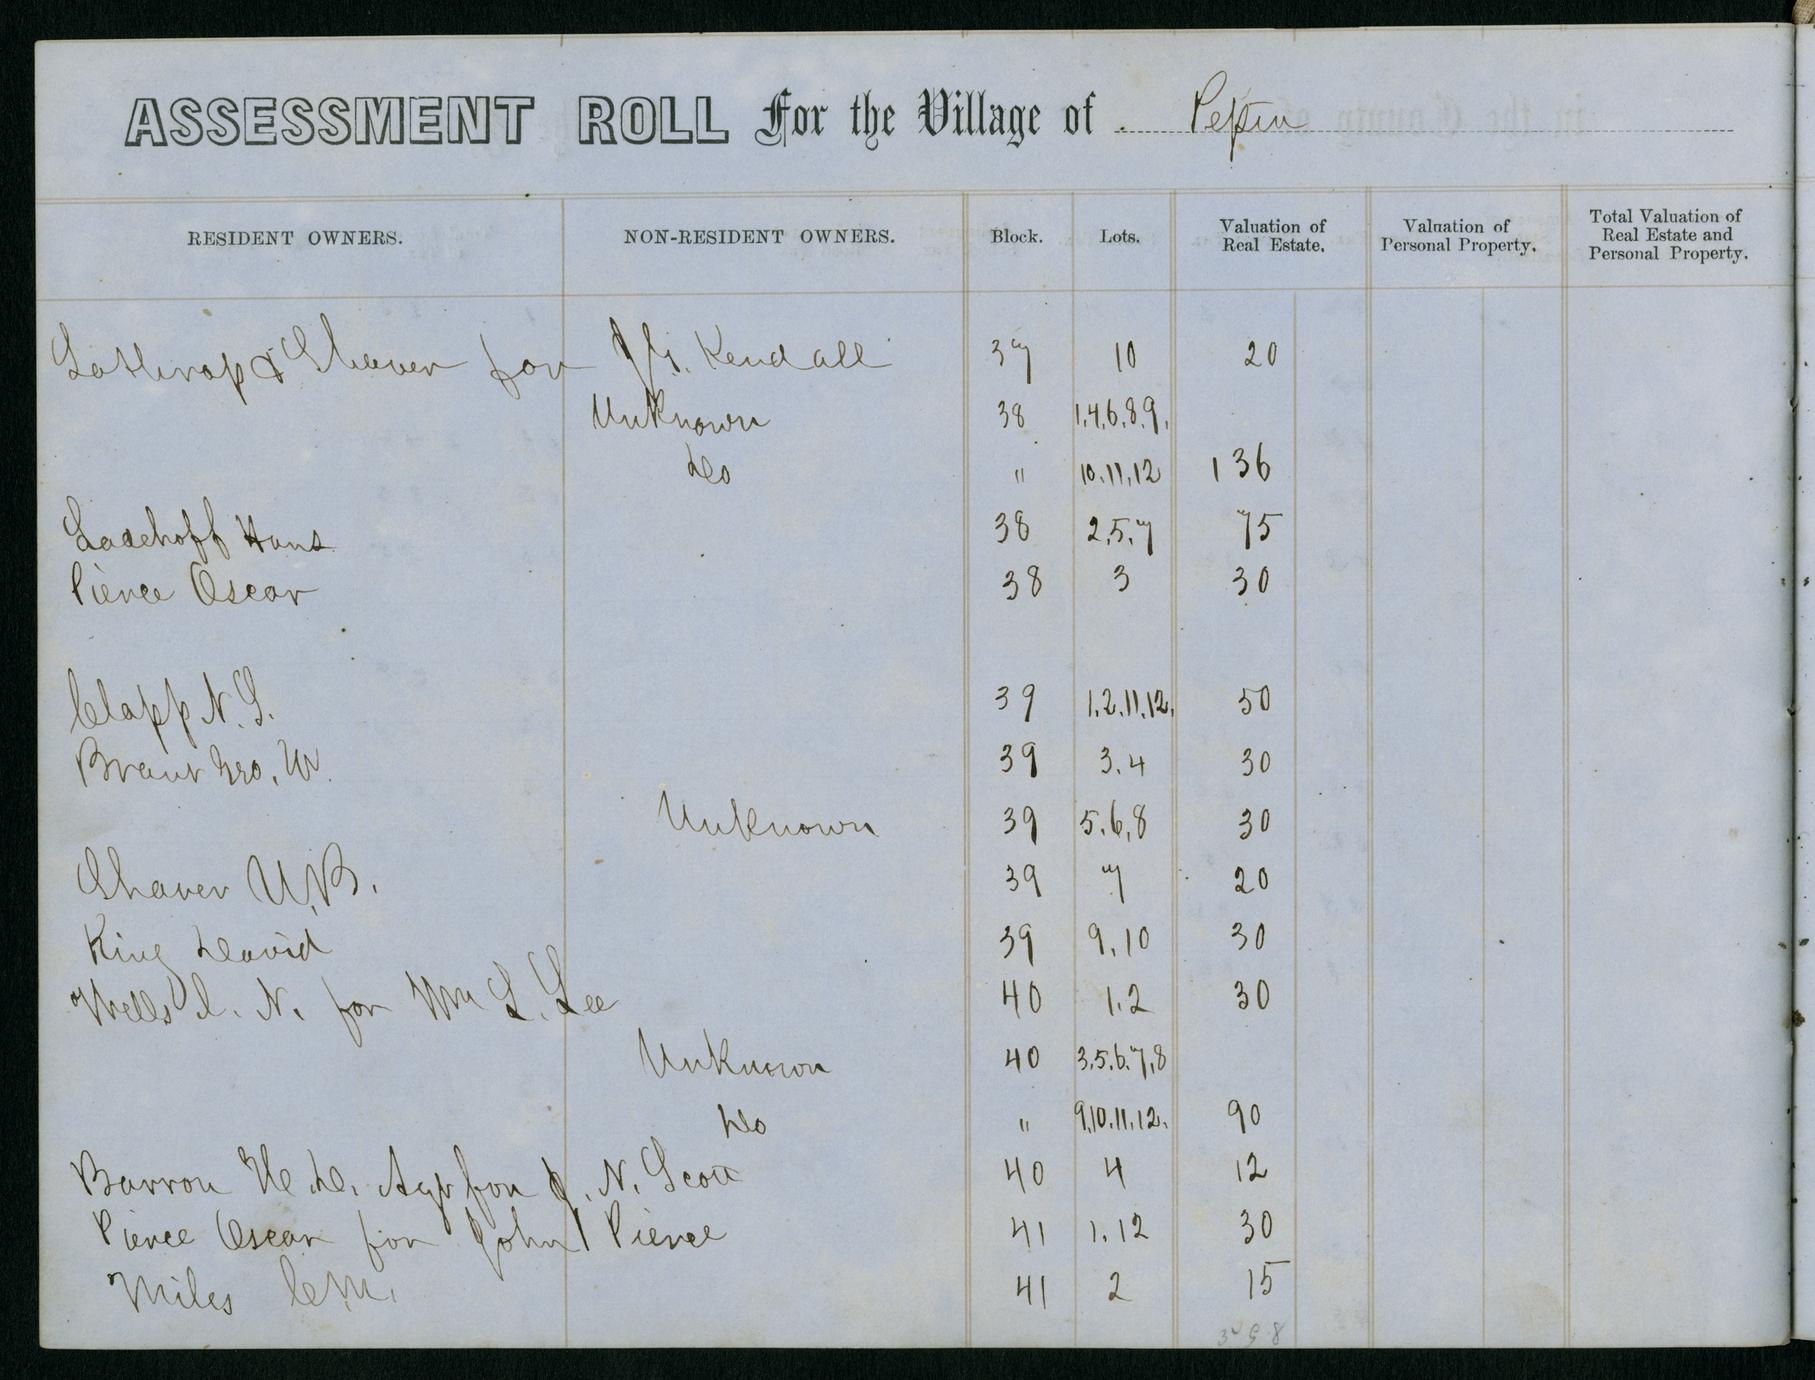 ASSESSMENT ROLL For the Village of Pepin
RESIDENT OWNERS. NON-RESIDENT OWNERS. Block. Lots. Valuation of Real Estate. Valuation of Personal Property. Total Valuation of Real Estate and Personal Property.
Lathrop & Shaver for J. G. Kendall 37 10 20
Unknown 38 1,4,6,8,9,
Do " 10,11,12 136
Lasehoff Hans 38 2,5,7 75
Pierce Oscar 38 3 30
Clapp N. S. 39 1,2,11,12, 50
Brant Geo. W. 39 3,4 30
Unknown 39 5,6,8 30
Shaver U. B. 39 7 20
King David 39 9,10 30
Wells I. N. for Wm L. Lee 40 1,2 30
Unknown 40 3,5,6,7,8
Do " 9,10,11,12, 90
Barron H. D. Agt for J. N. Scott 40 4 12
Pierce Oscar for John Pierce 41 1,12 30
Miles C. M. 41 2 15